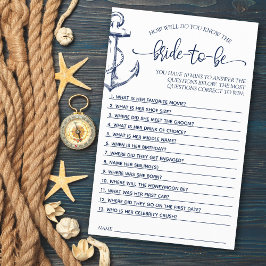 HOW WELL DO YOU KNOW THE
bride-to-be
YOU HAVE 5 MINS TO ANSWER THE
QUESTIONS BELOW. THE MOST
QUESTIONS CORRECT TO WIN.
1. WHAT IS HER FAVORITE MOVIE?
2. WHAT IS HER SHOE SIZE?
3. WHERE DID SHE MEET THE GROOM?
4. WHAT IS HER DRINK OF CHOICE?
5. WHAT IS HER MIDDLE NAME?
6. WHEN IS HER BIRTHDAY?
7. WHERE DID THEY GET ENGAGED?
8. NAME HER SIBLING(S)
9. WHERE WAS SHE BORN?
10. WHERE WILL THE HONEYMOON BE?
11. WHAT WAS HER FIRST CAR?
12. WHERE DID THEY GO ON THE FIRST DATE?
13. WHO IS HER CELEBRITY CRUSH?
NAME